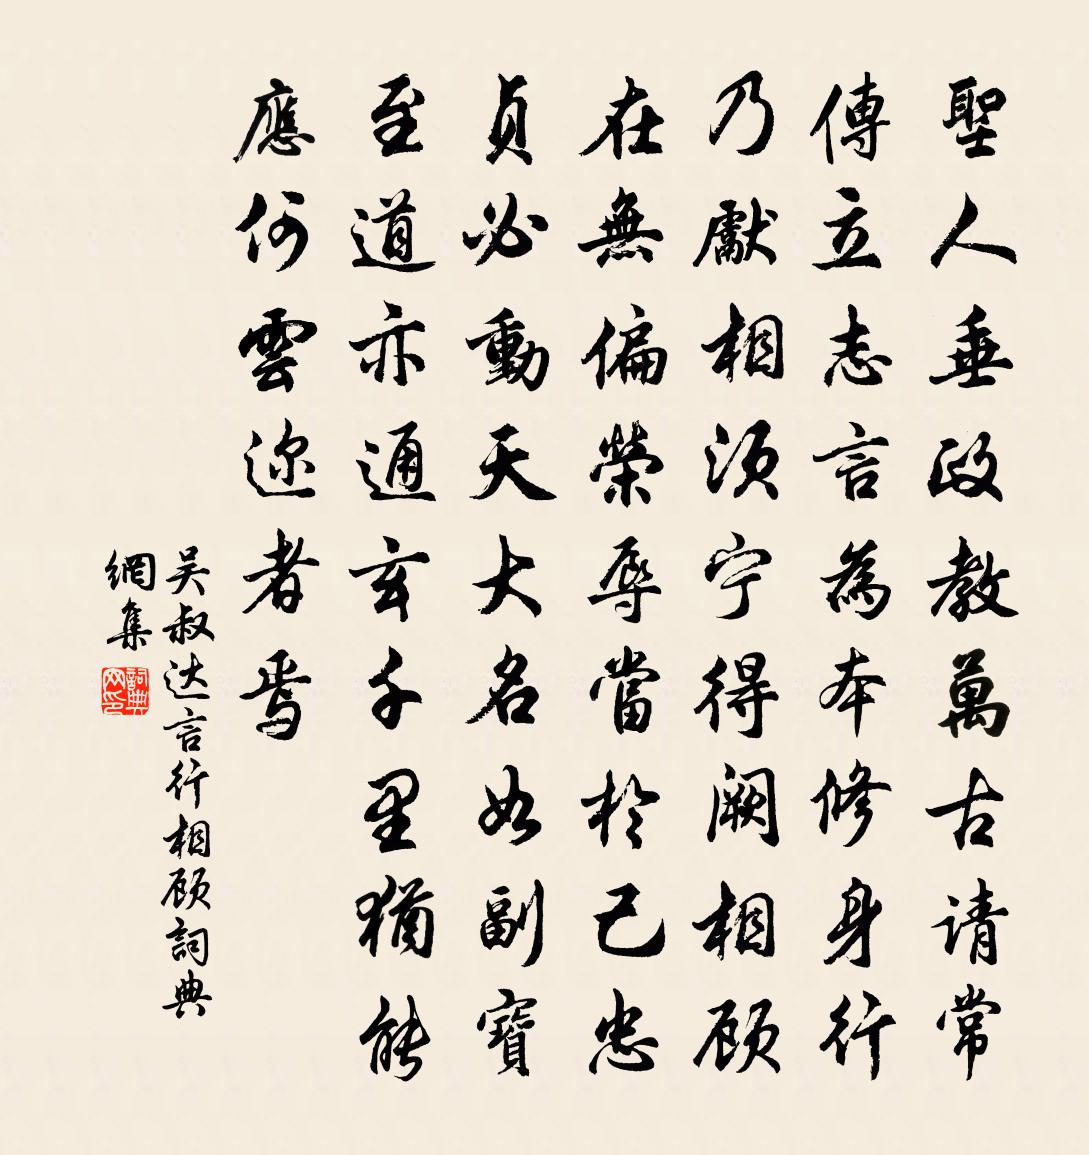 聖人垂政教萬古请常
傳立志言為本修身行
乃獻相须宁得阙相顾
在無偏榮辱當於己忠
貞必動天大名如副寶
至道亦通玄千里猶能
應何雲迩者焉
吴叔达言行相顾詞典
網集
詞典网印